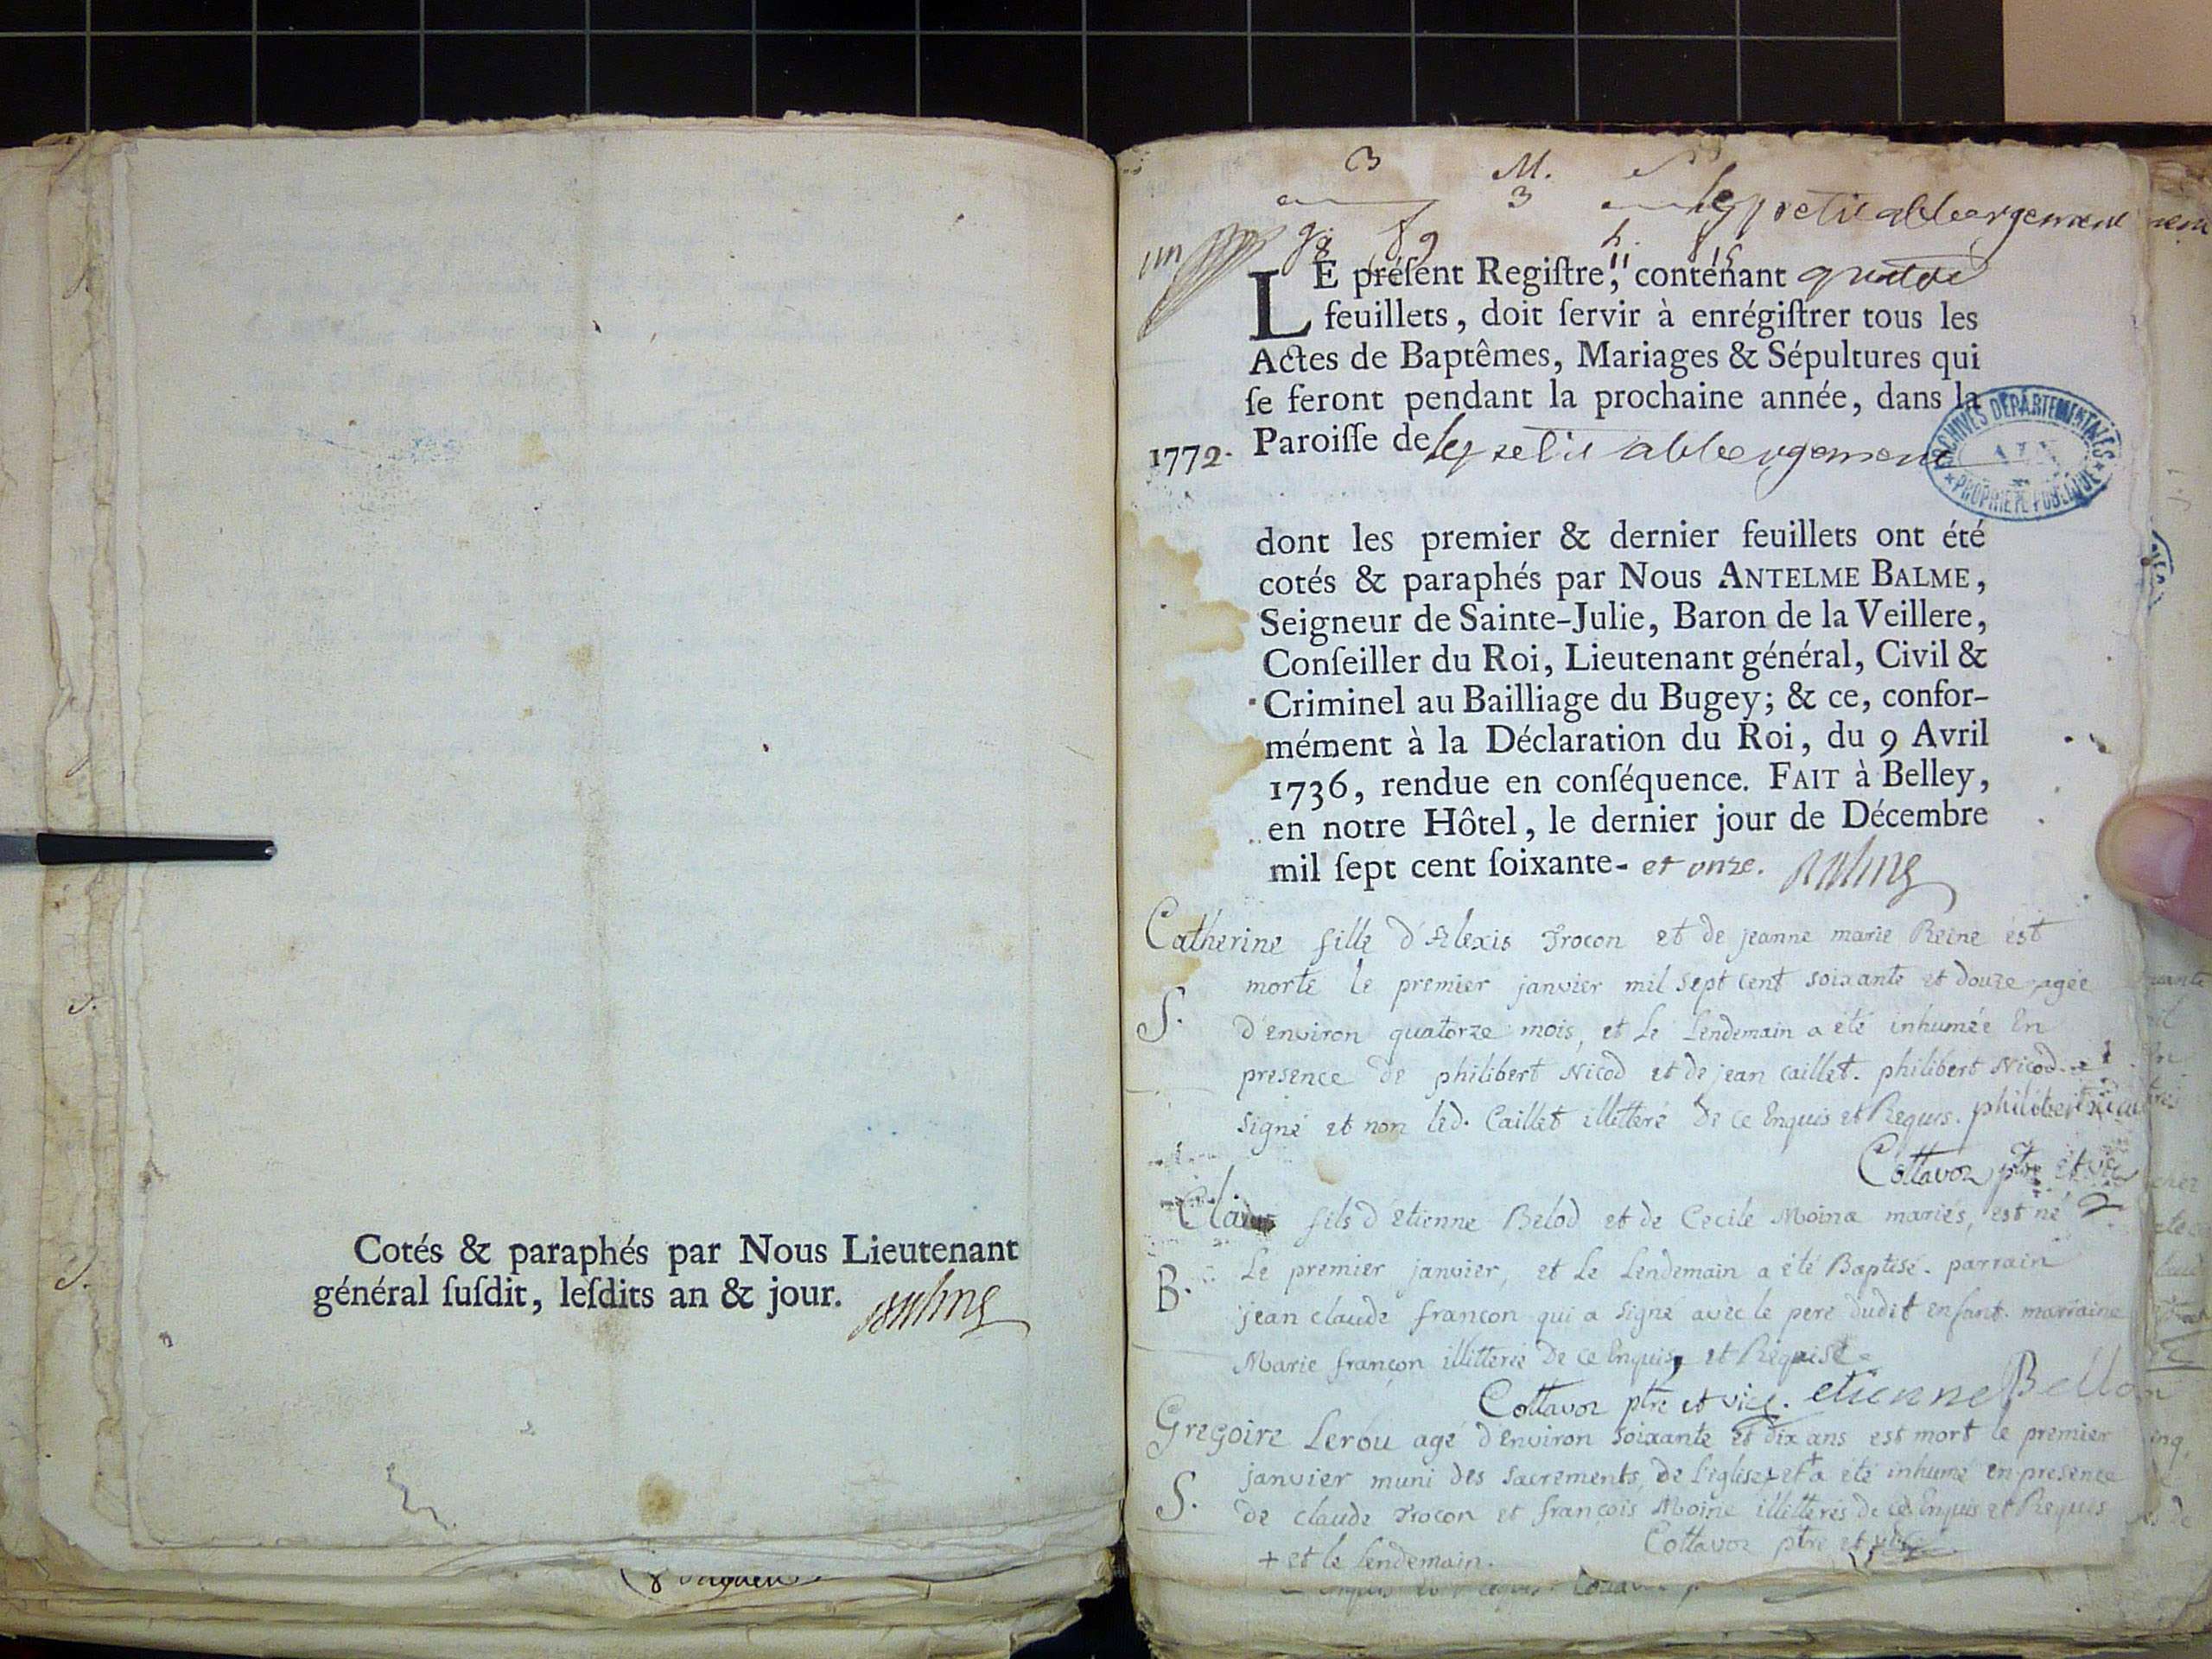 Cotés & paraphés par Nous Lieutenant
général ſuſdit, leſdits an & jour.
B M. S
3
le petit abbergement
LE préſent Regiſtre, contenant quatre
feuillets, doit ſervir à enrégiſtrer tous les
Actes de Baptêmes, Mariages & Sépultures qui
ſe feront pendant la prochaine année, dans la
1772. Paroiſſe de le petit abbergement
ARCHIVES DÉPARTEMENTALES
AIN
PROPRIÉTÉ PUBLIQUE
dont les premier & dernier feuillets ont été
cotés & paraphés par Nous ANTELME BALME,
Seigneur de Sainte-Julie, Baron de la Veillere,
Conſeiller du Roi, Lieutenant général, Civil &
Criminel au Bailliage du Bugey; & ce, confor-
mément à la Déclaration du Roi, du 9 Avril
1736, rendue en conſéquence. FAIT à Belley,
en notre Hôtel, le dernier jour de Décembre
mil ſept cent ſoixante- et onze.
Catherine fille d'Alexis Trocon et de jeanne marie Reine est
morte le premier janvier mil sept cent soixante et douze agée
S. d'environ quatorze mois, et le lendemain a été inhumée En
presence de philibert Nicod et de jean caillet. philibert Nicod
signé et non led. Caillet illitteré de ce Enquis et Requis. philibert nicod
Cottavoz ptre et vic
Claude fils d'etienne Belod et de Cecile Moine mariés, est né
B. Le premier janvier, et le lendemain a été Baptisé. parrain
jean claude françon qui a signé avec le pere dudit enfant. marraine
Marie françon illitterée de ce Enquise et Requise.
Cottavoz ptre et vic. etienne Bellod
Gregoire Lerou agé d'environ soixante et dix ans est mort le premier
janvier muni des sacrements, de l'eglise + et a été inhumé en presence
S. de claude Trocon et françois Moine illitterés de ce Enquis et Requis
Cottavoz ptre et vic
+ et le lendemain.